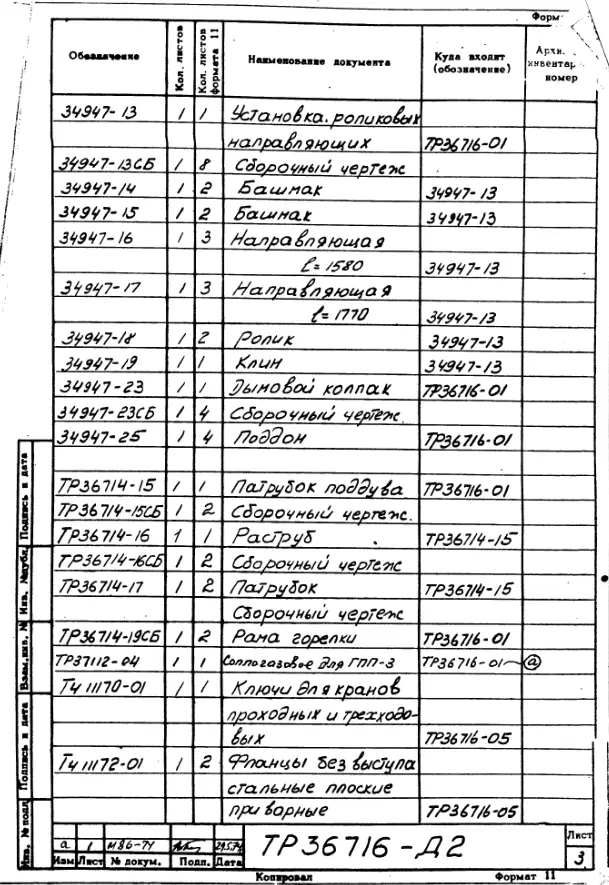 Форм
Обозначение Кол. листов Кол. листов формата 11 Наименование документа Куда входит (обозначение) Архи. инвентар. номер
34947-13 1 1 Установка роликовых
направляющих ТР36716-01
34947-13СБ 1 8 Сборочный чертеж
34947-14 1 2 Башмак 34947-13
34947-15 1 2 Башмак 34947-13
34947-16 1 3 Направляющая
ℓ=1580 34947-13
34947-17 1 3 Направляющая
ℓ=1770 34947-13
34947-18 1 2 Ролик 34947-13
34947-19 1 1 Клин 34947-13
34947-23 1 1 Дымовой колпак ТР36716-01
34947-23СБ 1 4 Сборочный чертеж.
34947-25 1 4 Поддон ТР36716-01
ТР36714-15 1 1 Патрубок поддува ТР36716-01
ТР36714-15СБ 1 2 Сборочный чертеж.
ТР36714-16 1 1 Раструб ТР36714-15
ТР36714-16СБ 1 2 Сборочный чертеж
ТР36714-17 1 2 Патрубок ТР36714-15
Сборочный чертеж
ТР36714-19СБ 1 2 Рама горелки ТР36716-01
ТР37112-04 1 1 Сопло газовое для ГПП-3 ТР36716-01 а
Тч 11170-01 1 1 Ключи для кранов
проходных и трехходо-
вых ТР36716-05
Тч 11172-01 1 2 Фланцы без выступа
стальные плоские
приварные ТР36716-05
Подпись и дата
Инв. №дубл.
Взам.инв. №
Подпись и дата
Инв. №подл.
а 1 М86-74 29.5.74
Изм Лист № докум. Подп. Дата
ТР36716-Д2
Лист
3
Копировал Формат 11